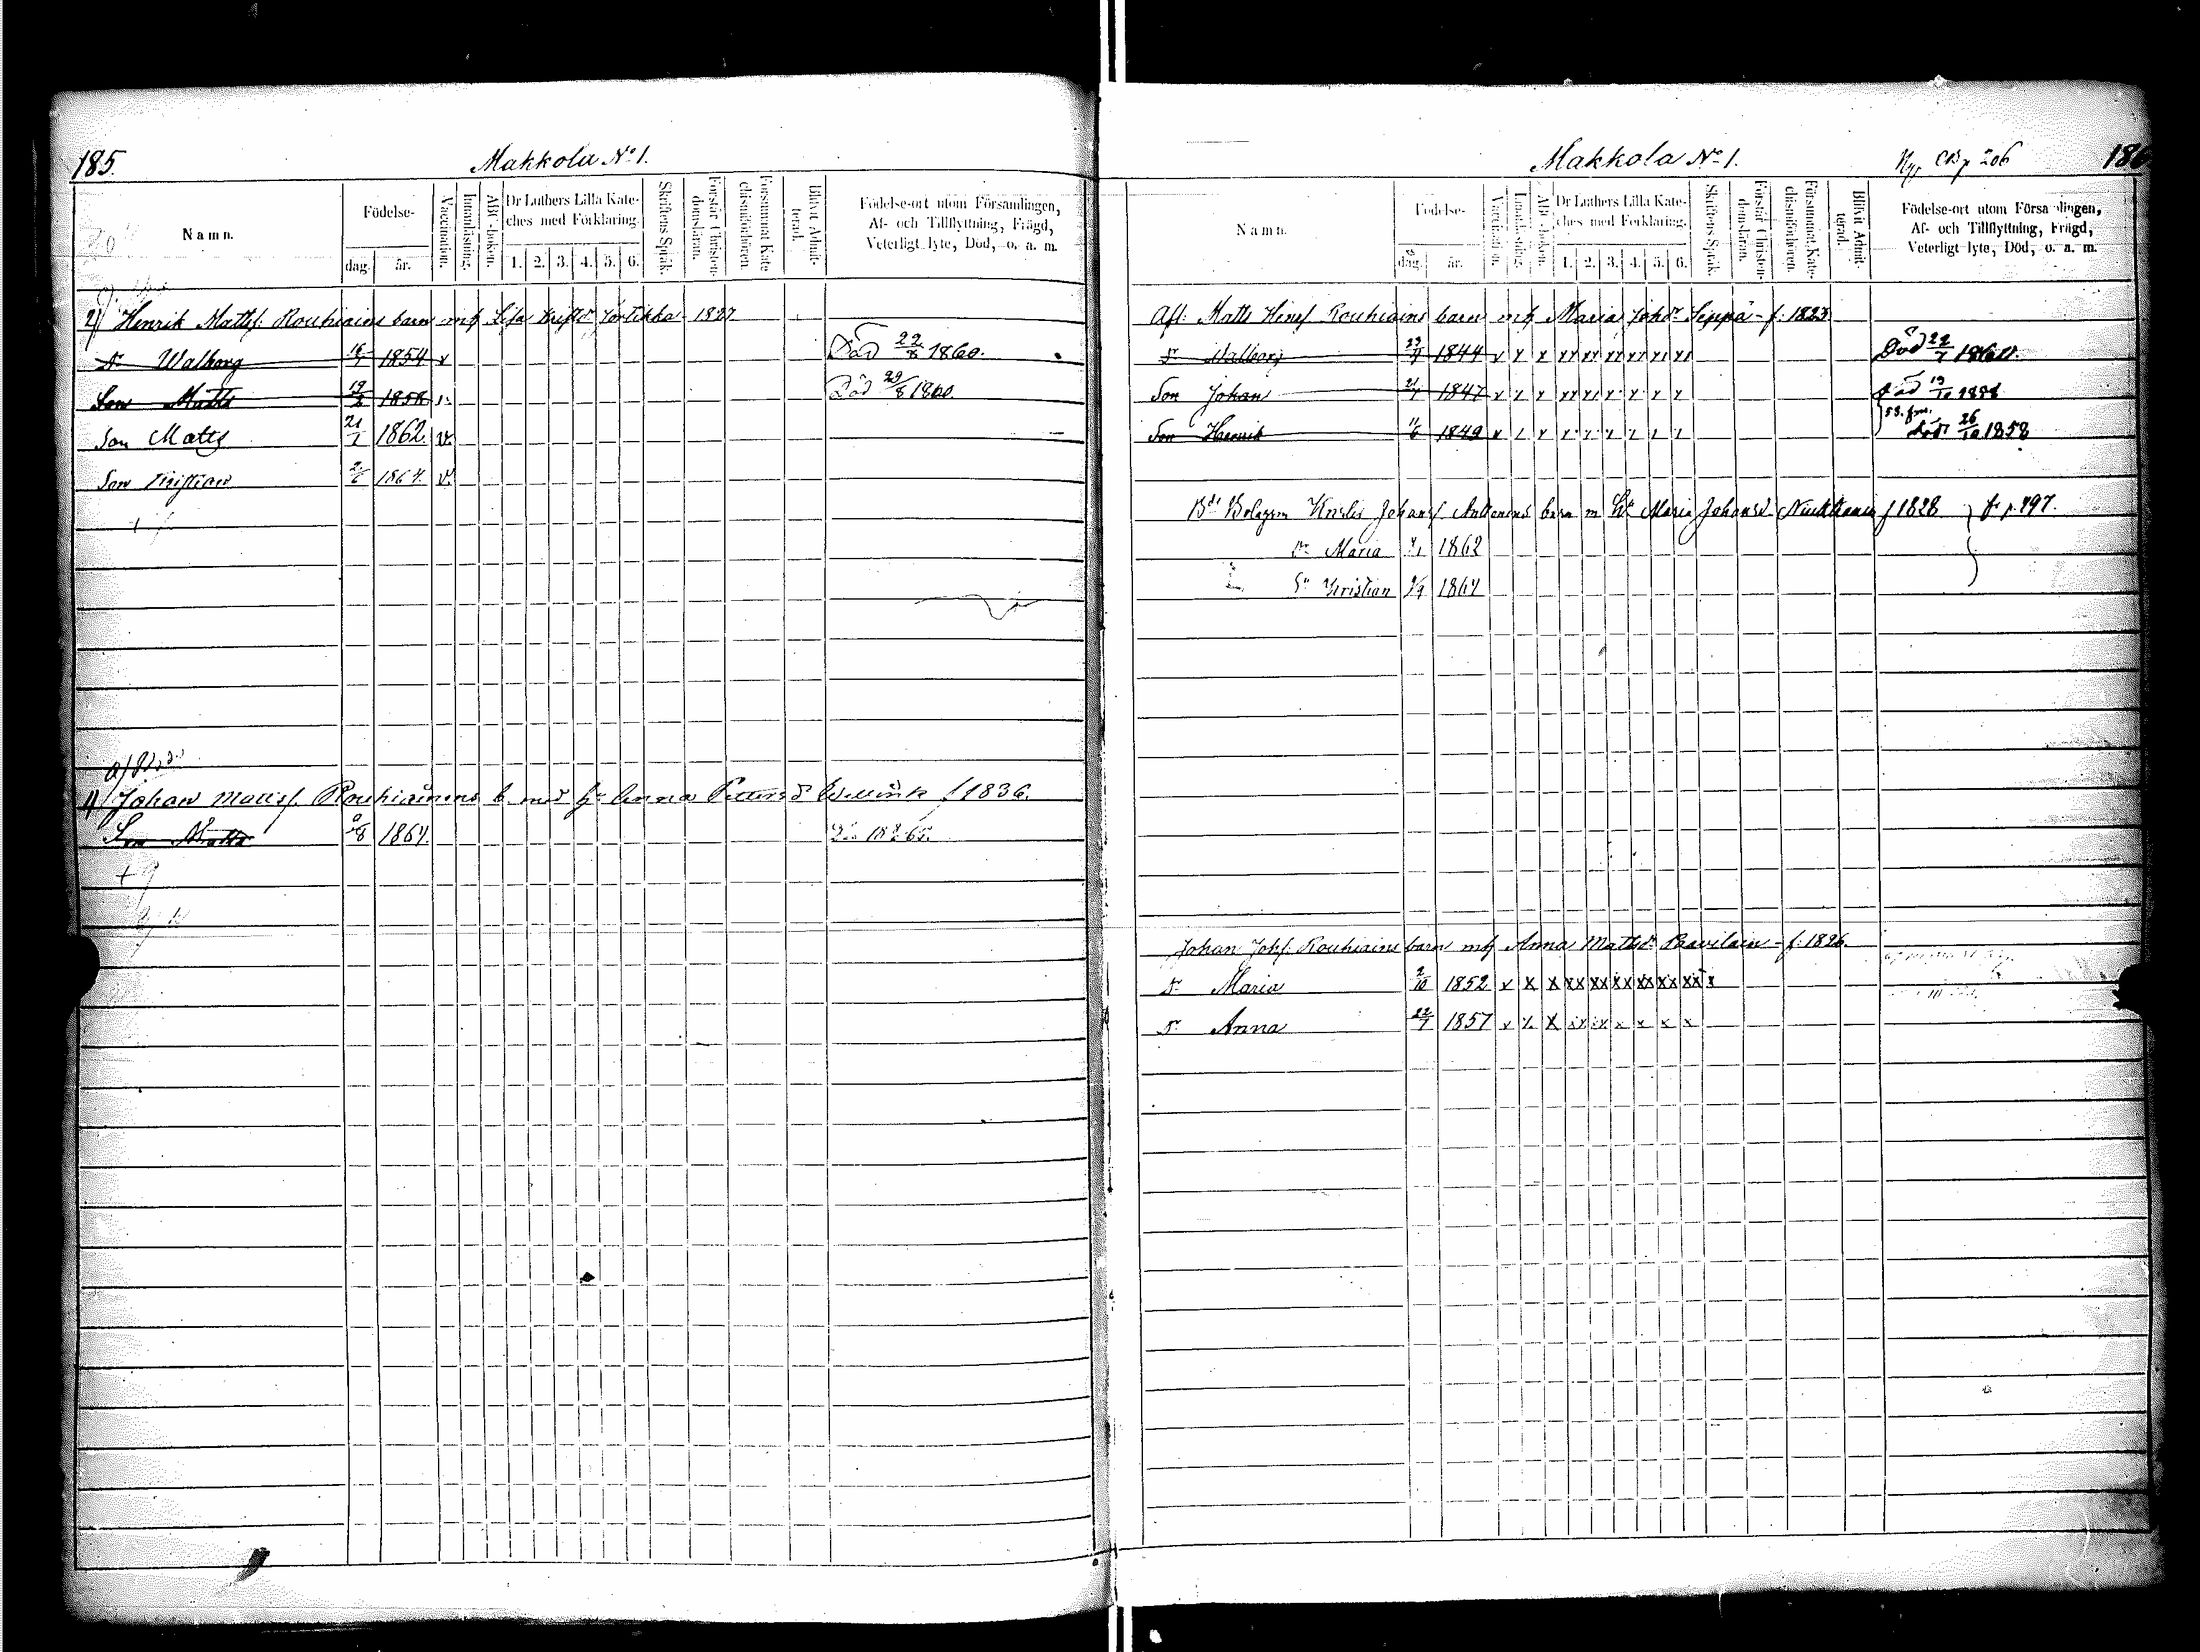 185.
Makkola No 1.
Namn.
Födelse-
dag. år.
Vaccination.
Innanläsning.
ABC-boken.
Dr Luthers Lilla Kateches med Förklaring.
1. 2. 3. 4. 5. 6.
Skriftens Språk.
Förstår Christendomsläran.
Försummat Katechismiförhören
Blifvit Admitterad.
Födelse-ort utom Församlingen, Af- och Tillflyttning, Frägd, Veterligt lyte, Död, o. a. m.
2) Henrik Mattss. Rouhiains barn mh Lisa Kristd. 1827
Dr Walborg 1854 v Död 22/8 1860.
Son Matts 19/2 1858 v Död 29/8 1860.
Son Matts 21/1 1862. v.
Son Kristian 1864. v.
1) Johan Mattss. Rouhiainens b. med h. Anna Petters d f 1836.
Son Matts 1864.
Makkola No 1.
206
186
Namn.
Födelse-
dag. år.
Vaccination.
Innanläsning.
ABC-boken.
Dr Luthers Lilla Kateches med Förklaring.
1. 2. 3. 4. 5. 6.
Skriftens Språk.
Förstår Christendomsläran.
Försummat Katechismiförhören.
Blifvit Admitterad.
Födelse-ort utom Församlingen, Af- och Tillflyttning, Frägd, Veterligt lyte, Död, o. a. m.
Afl. Matts Hinrs Rouhiains barn mh Maria Johdr Seppä - f. 1823
dr Walborg 1844 v x x xx xx xx xx xx xx Död 1860.
Son Johan 1847 v x x xx xx x x x x Död 19/10 1858
Son Henrik 11/6 1849 död 26/10 1858
Johans Anttonens barn m Hu Maria Johansd. f 1828 fr p. 497.
Dr Maria 1862
Sn Kristian 1864
Johan Johs. Rouhiains barn mh Anna Mattsdr Paavilain - f. 1826.
dr Maria 2/10 1852 v x x xx xx xx xx xx xx x
dr Anna 22/7 1857 v x x xx xx x x x x